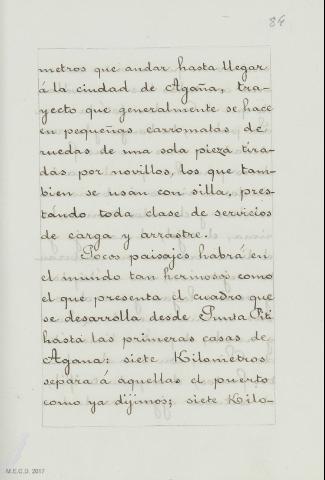 84
metros que andar hasta llegar
á la ciudad de Agaña, tra-
yecto que generalmente se hace
en pequeñas carromatas de
ruedas de una sola pieza tira-
das por novillos, los que tam-
bien se usan con silla, pres-
tando toda clase de servicios
de carga y arrastre.
Pocos paisajes habrá en
el mundo tan hermosos como
el que presenta el cuadro que
se desarrolla desde Punta Piti
hasta las primeras casas de
Agana: siete Kilometros
separa á aquellas el puerto
como ya dijimos; siete Kilo-
M.E.C.D. 2017